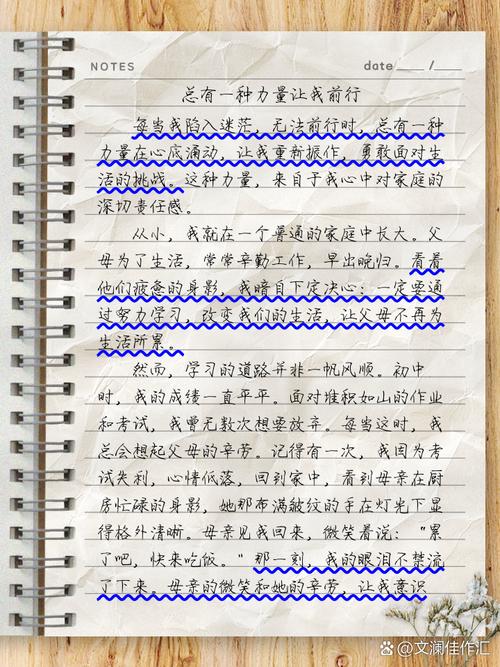 NOTES
date / 
总有一种力量让我前行
每当我陷入迷茫，无法前行时，总有一种
力量在心底涌动，让我重新振作，勇敢面对生
活的挑战。这种力量，来自于我心中对家庭的
深切责任感。
从小，我就在一个普通的家庭中长大。父
母为了生活，常常辛勤工作，早出晚归。看着
他们疲惫的身影，我暗自下定决心：一定要通
过努力学习，改变我们的生活，让父母不再为
生活所累。
然而，学习的道路并非一帆风顺。初中
时，我的成绩一直平平。面对堆积如山的作业
和考试，我曾无数次想要放弃。每当这时，我
总会想起父母的辛劳。记得有一次，我因为考
试失利，心情低落，回到家中，看到母亲在厨
房忙碌的身影，她那布满皱纹的手在灯光下显
得格外清晰。母亲见我回来，微笑着说："累
了吧，快来吃饭。"那一刻，我的眼泪不禁流
了下来。母亲的微笑和她的辛劳，让我意识
@文澜佳作汇